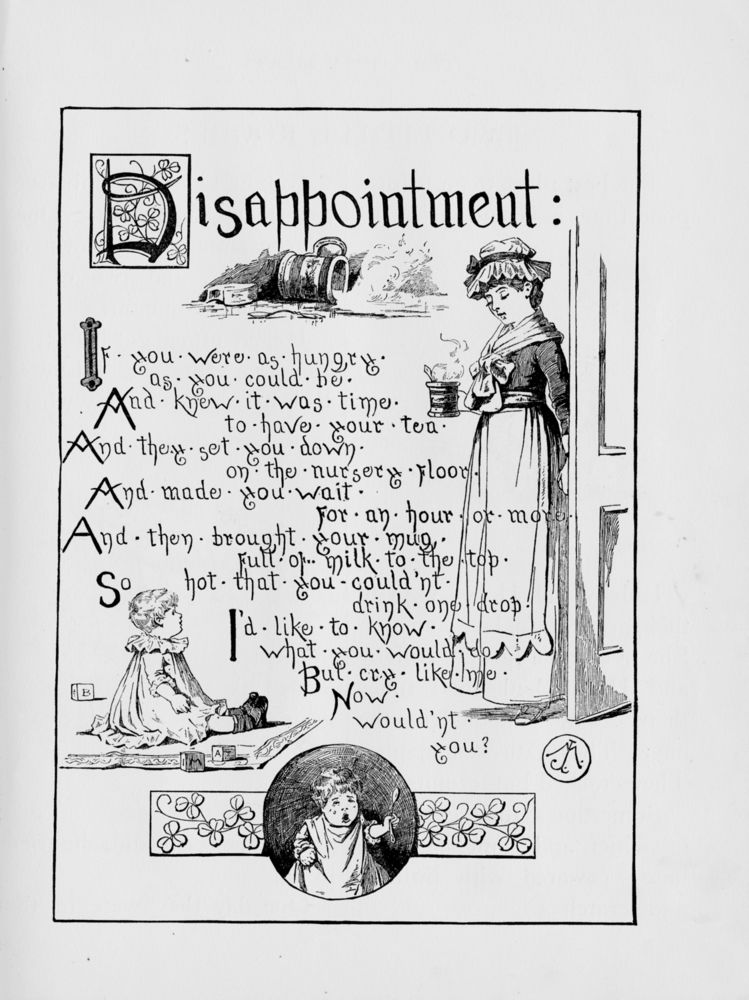 Disappointment:
If·you·were·as·hungry·
as·you·could·be·
And·knew·it·was·time·
to·have·your·tea·
And·they·set·you·down·
on·the·nursery·floor·
And·made·you·wait·
For·an·hour·or·more·
And·then·brought·your·mug,·
full·of·milk·to·the·top·
So hot·that·you·could'nt·
drink·one·drop·
I'd·like·to·know·
what·you·would·do·
But·cry·like·me·
Now·
would'nt·
you?
B
M
A